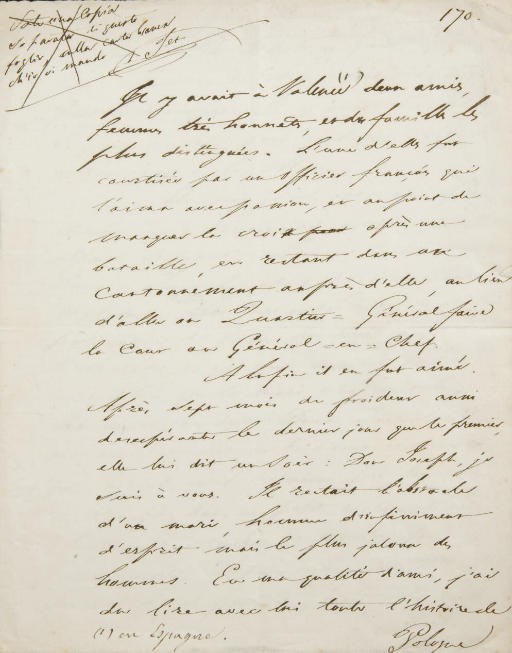 170.
Fate una copia
separata di questo
foglio, sulla carta bianca
ch'io vi mando
Il y avait à Valence (1) deux amies,
femmes très honnêtes, et des familles les
plus distinguées. L'une d'elles fut
courtisée par un officier français qui
l'aima avec passion, et au point de
manquer la croix après une
bataille, en restant dans un
cantonnement auprès d'elle, au lieu
d'aller au Quartier=Général faire
la cour au Général=en=Chef.
A la fin il en fut aimé.
Après sept mois de froideur aussi
désespérante le dernier jour que le premier,
elle lui dit un soir : Don Joseph, je
suis à vous. Il restait l'obstacle
d'un mari, homme d'infiniment
d'esprit mais le plus jaloux des
hommes. En ma qualité d'ami, j'ai
du lire avec lui toute l'histoire de
(1) en Espagne.
Pologne